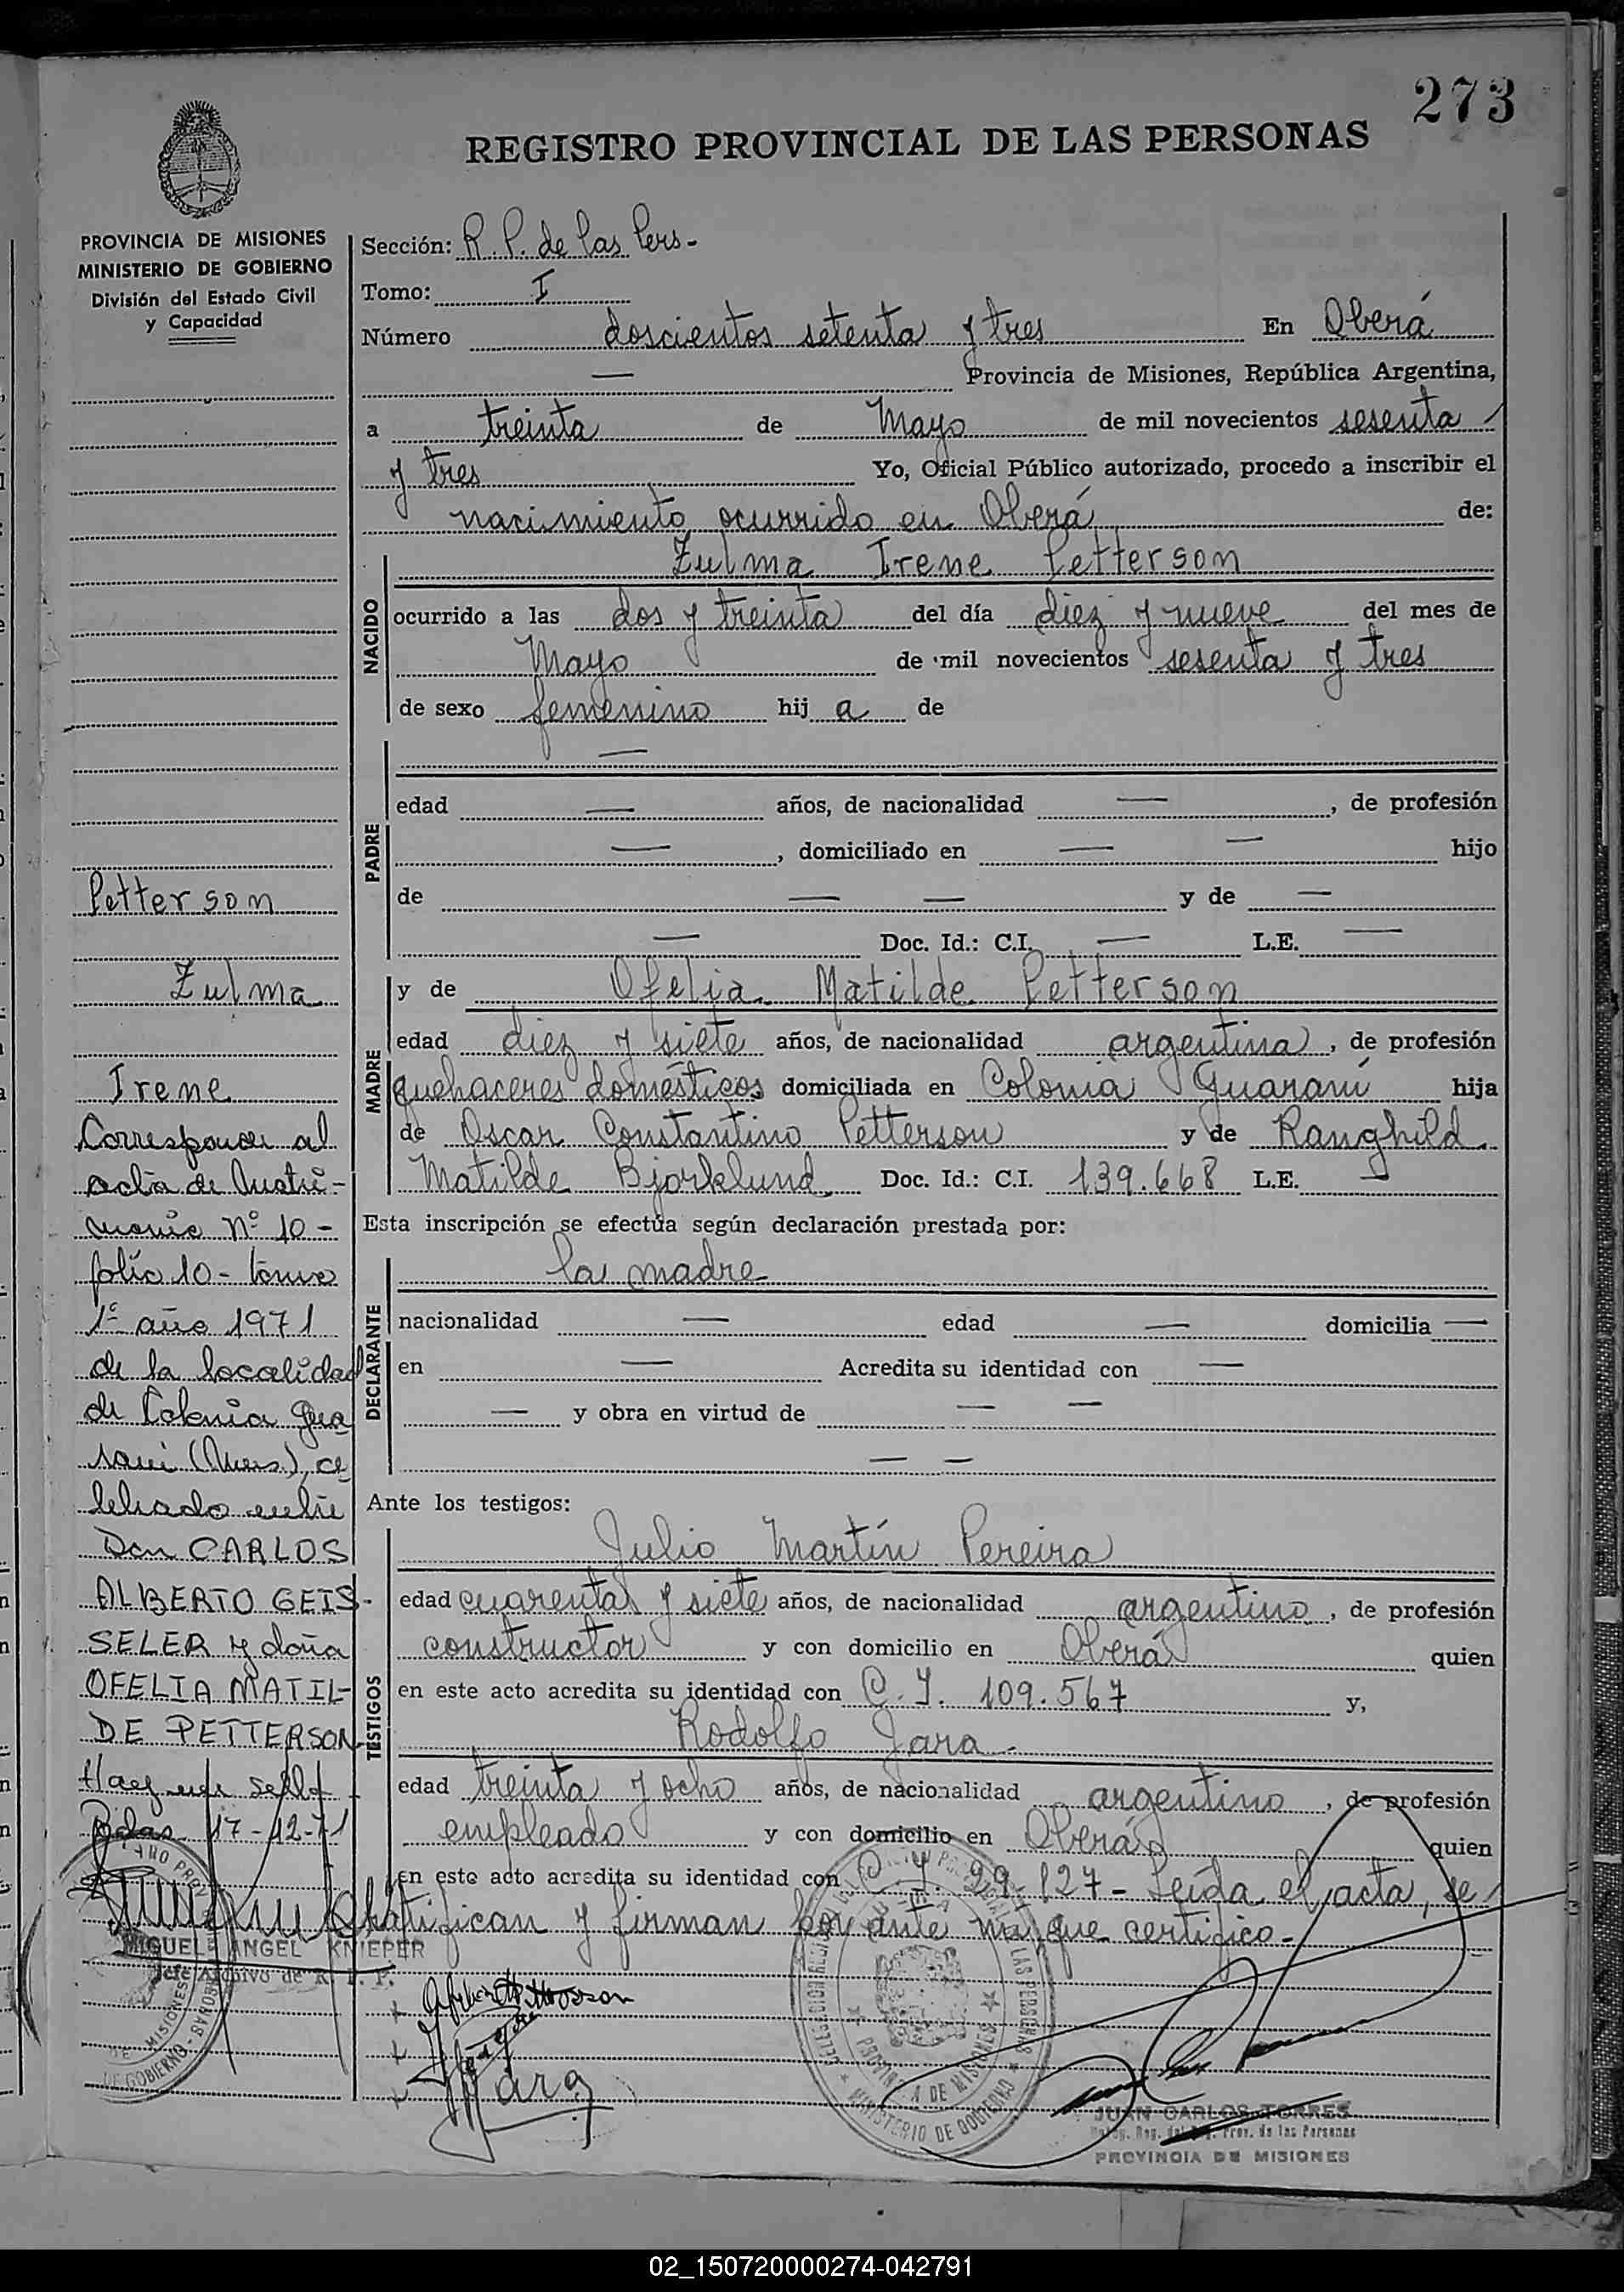 273
REGISTRO PROVINCIAL DE LAS PERSONAS
PROVINCIA DE MISIONES
MINISTERIO DE GOBIERNO
División del Estado Civil
y Capacidad
Petterson
Zulma
Irene
Corresponde al
acta de Matri-
monio Nº 10-
folio 10- tomo
1º año 1971
de la localidad
de Colonia Gua
raní (Mnes), ce
lebrado entre
Don CARLOS
ALBERTO GEIS-
SELER y doña
OFELIA MATIL-
DE PETTERSON
Hay un sello
Pdas. 17-12-71
MIGUEL ANGEL KNIEPER
Jefe Archivo de R. P. P.
Sección: R. P. de las Pers-
Tomo: I
Número doscientos setenta y tres En Oberá
— Provincia de Misiones, República Argentina,
a treinta de Mayo de mil novecientos sesenta
y tres Yo, Oficial Público autorizado, procedo a inscribir el
nacimiento ocurrido en Oberá de:
NACIDO
Zulma Irene Petterson
ocurrido a las dos y treinta del día diez y nueve del mes de
Mayo de mil novecientos sesenta y tres
de sexo femenino hij a de
PADRE
—
edad — años, de nacionalidad —, de profesión
—, domiciliado en — — hijo
de — — y de —
— Doc. Id.: C.I. — L.E. —
MADRE
y de Ofelia Matilde Petterson
edad diez y siete años, de nacionalidad argentina, de profesión
quehaceres domésticos domiciliada en Colonia Guaraní hija
de Oscar Constantino Petterson y de Ranghild
Matilde Bjorklund Doc. Id.: C.I. 139.668 L.E. —
Esta inscripción se efectúa según declaración prestada por:
DECLARANTE
la madre
nacionalidad — edad — domicilia —
en — Acredita su identidad con —
— y obra en virtud de — —
— —
Ante los testigos:
TESTIGOS
Julio Martín Pereira
edad cuarenta y siete años, de nacionalidad argentino, de profesión
constructor y con domicilio en Oberá quien
en este acto acredita su identidad con C. I. 109.567 y,
Rodolfo Jara-
edad treinta y ocho años, de nacionalidad argentino, de profesión
empleado y con domicilio en Oberá quien
en este acto acredita su identidad con C I 99.127- Leída el acta, se
ratifican y firman por ante mí, que certifico-
PROVINCIA DE MISIONES
MINISTERIO DE GOBIERNO
JUAN CARLOS TORRES
Prov. de las Personas
PROVINCIA DE MISIONES
02_150720000274-042791